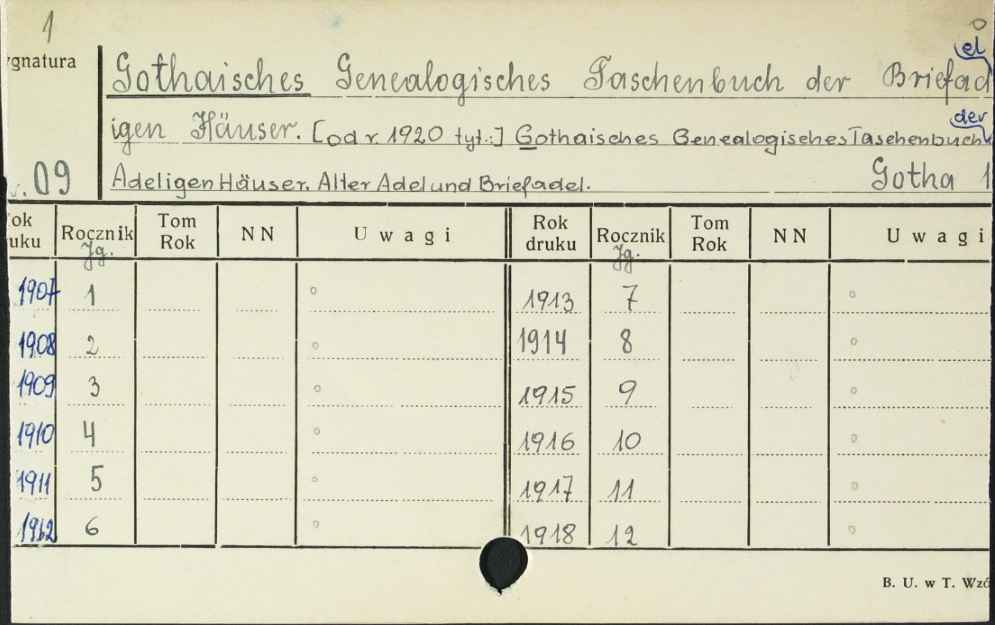 1
ygnatura
Gothaisches Genealogisches Taschenbuch der Briefad
el
igen Häuser. [od r. 1920 tyt.:] Gothaisches Genealogisches Taschenbuch
der
09
Adeligen Häuser. Alter Adel und Briefadel. Gotha 1
ok uku Rocznik Jg. Tom Rok NN Uwagi Rok druku Rocznik Jg. Tom Rok NN Uwagi
1907 1 1913 7
1908 2 1914 8
1909 3 1915 9
1910 4 1916 10
1911 5 1917 11
1912 6 1918 12
B. U. w T. Wzó